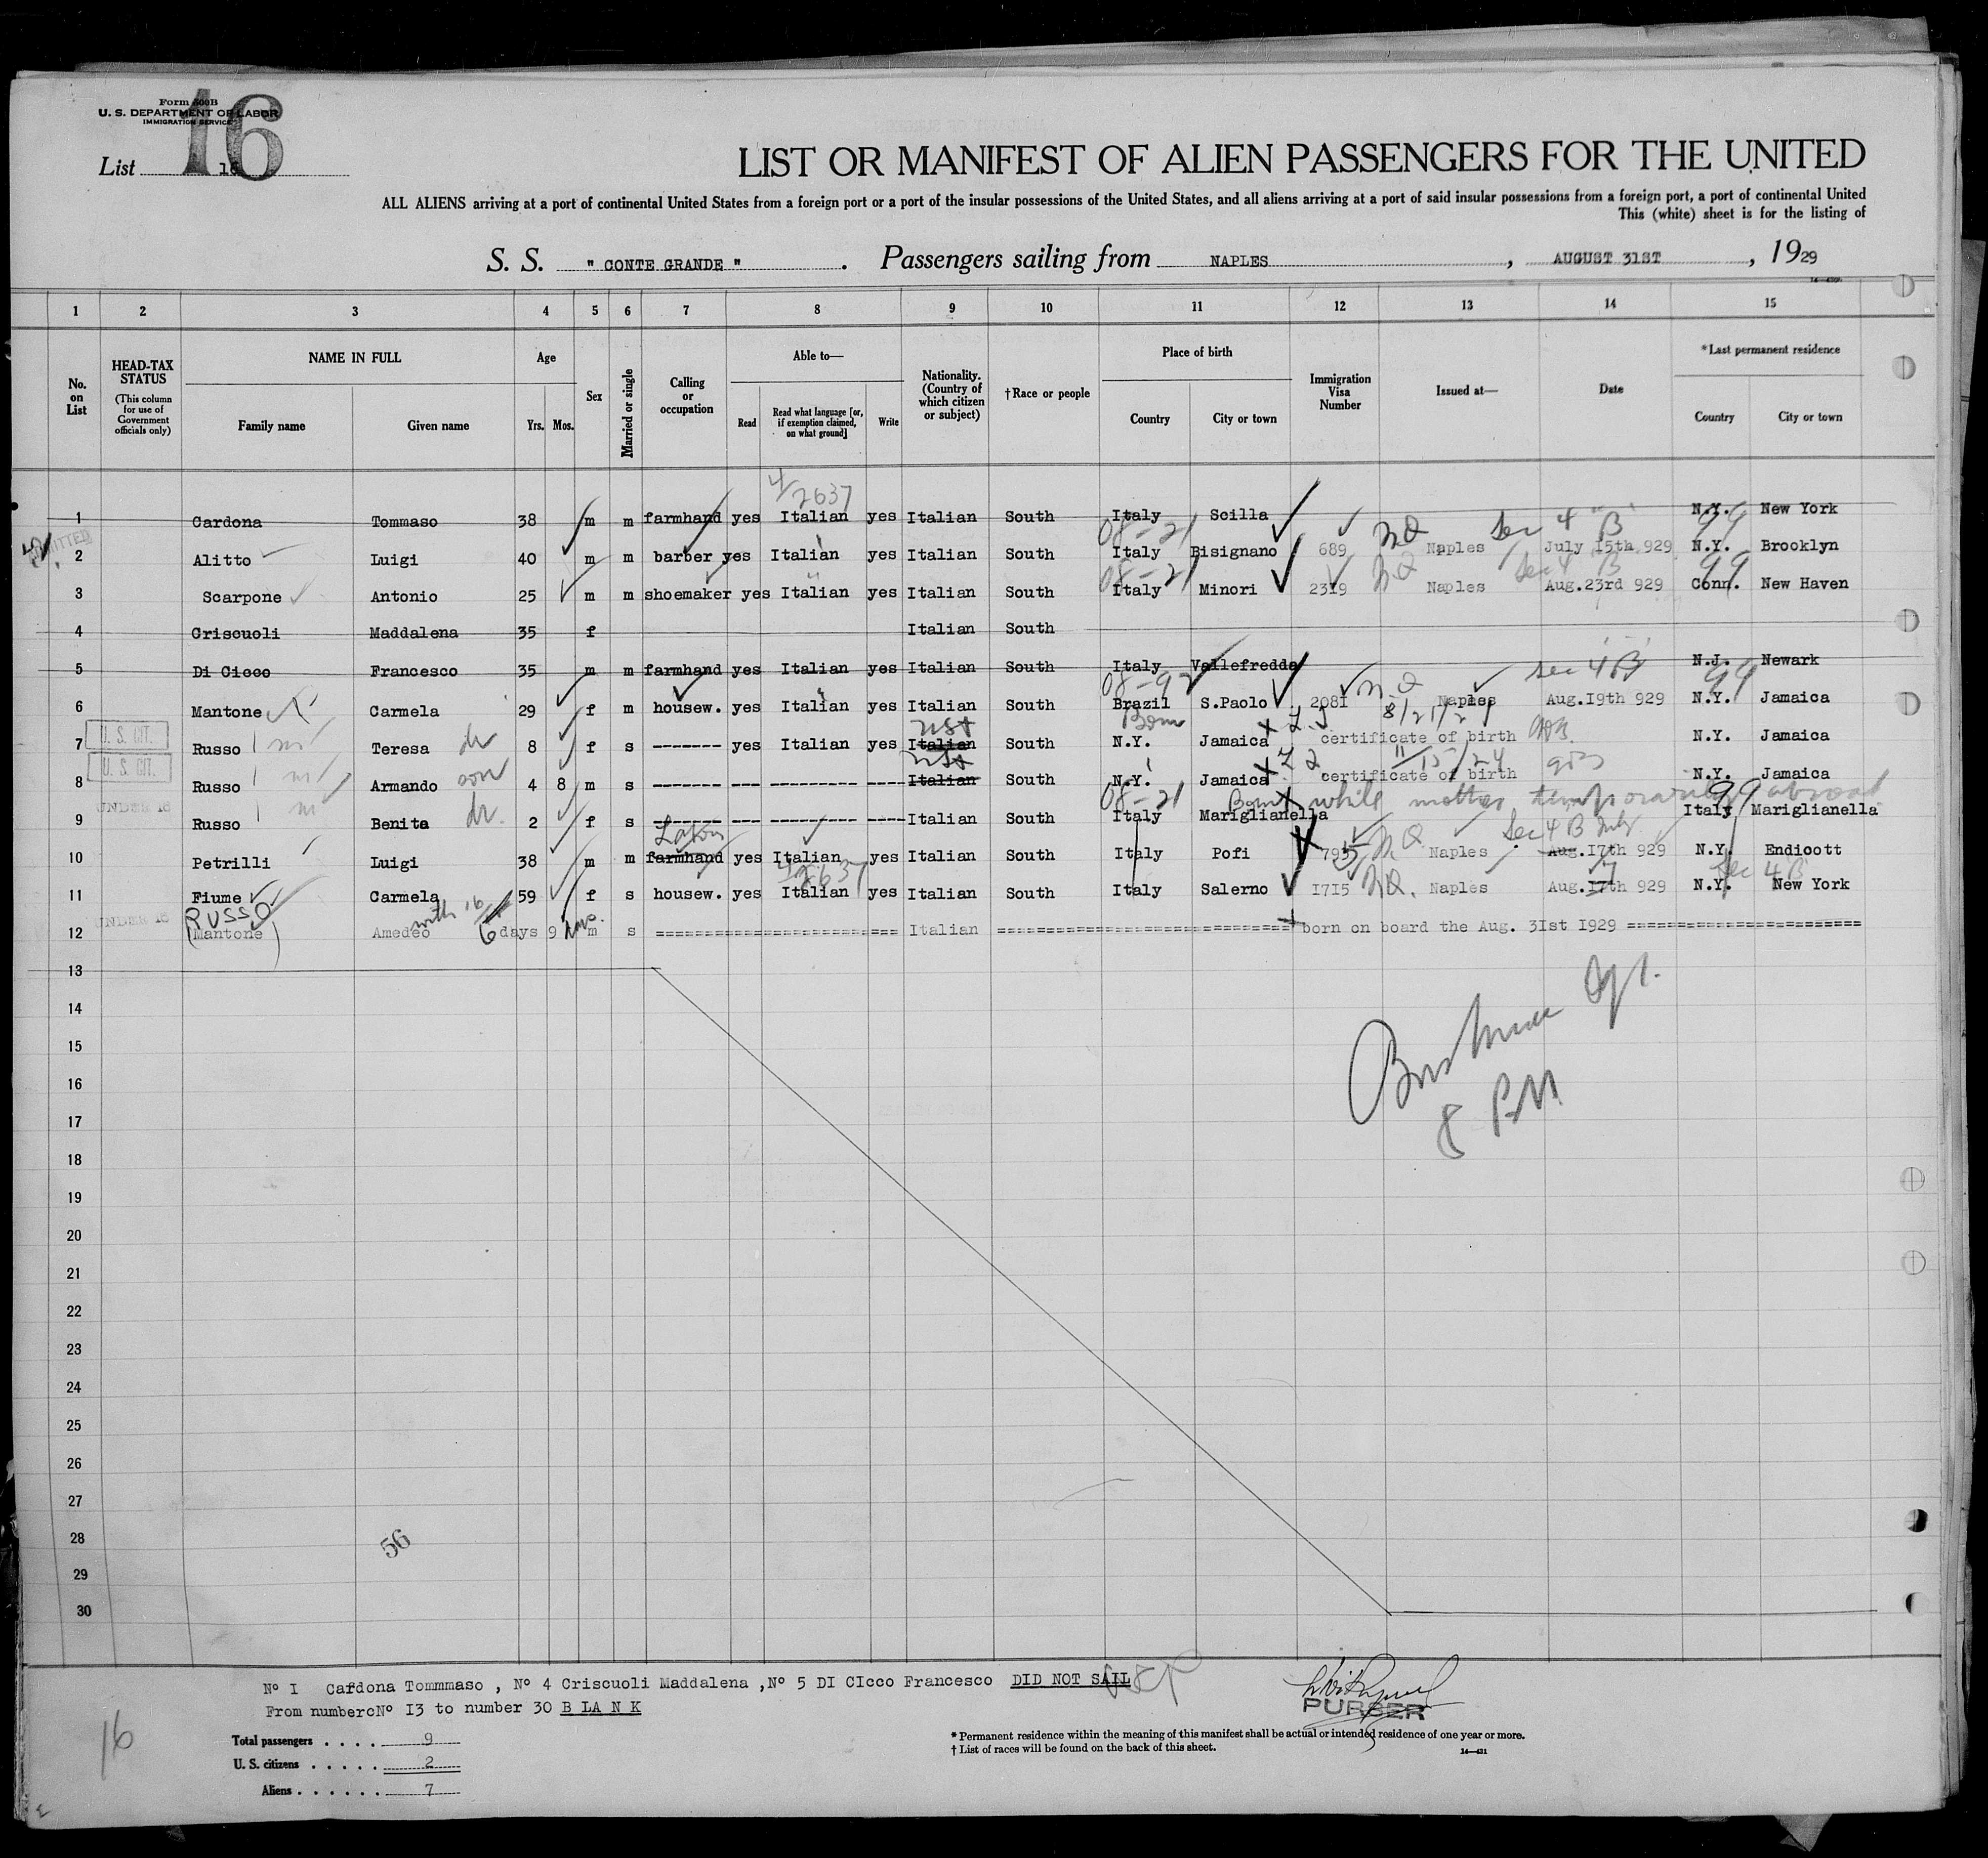 Form 500B
U. S. DEPARTMENT OF LABOR
IMMIGRATION SERVICE
16
List 16
LIST OR MANIFEST OF ALIEN PASSENGERS FOR THE UNITED
ALL ALIENS arriving at a port of continental United States from a foreign port or a port of the insular possessions of the United States, and all aliens arriving at a port of said insular possessions from a foreign port, a port of continental United
This (white) sheet is for the listing of
S. S. " CONTE GRANDE " . Passengers sailing from NAPLES , AUGUST 31ST , 1929
1 2 3 4 5 6 7 8 9 10 11 12 13 14 15
No. on List
HEAD-TAX STATUS (This column for use of Government officials only)
NAME IN FULL Family name Given name
Age Yrs. Mos.
Sex
Married or single
Calling or occupation
Able to— Read Read what language [or, if exemption claimed, on what ground] Write
Nationality. (Country of which citizen or subject)
†Race or people
Place of birth Country City or town
Immigration Visa Number
Issued at—
Date
*Last permanent residence Country City or town
4/2637
1 Cardona Tommaso 38 m m farmhand yes Italian yes Italian South Italy Scilla N.Y. New York
08-21 NQ Sec 4 "B" 99
ADMITTED
2 Alitto Luigi 40 m m barber yes Italian yes Italian South Italy Bisignano 689 Naples July 15th 929 N.Y. Brooklyn
08-21 NQ Sec 4 B 99
3 Scarpone Antonio 25 m m shoemaker yes Italian yes Italian South Italy Minori 2319 Naples Aug.23rd 929 Conn. New Haven
4 Criscuoli Maddalena 35 f Italian South
5 Di Cicco Francesco 35 m m farmhand yes Italian yes Italian South Italy Vallefredda N.J. Newark
08-9 N.Q Sec 4 B 99
6 Mantone Carmela 29 f m housew. yes Italian yes Italian South Brazil S.Paolo 2081 Naples Aug.19th 929 N.Y. Jamaica
U. S. CIT. USA Born 8/21/21
7 Russo Teresa dr 8 f s ------- yes Italian yes Italian South N.Y. Jamaica certificate of birth N.Y. Jamaica
U. S. CIT. USA 11/15/24
8 Russo Armando son 4 8 m s ------- --- --------- ---- Italian South N.Y. Jamaica certificate of birth N.Y. Jamaica
UNDER 16 08-21 Born while mother temporarily abroad 99
9 Russo Benita dr. 2 f s ------- --- --------- ---- Italian South Italy Mariglianella Italy Mariglianella
Labor NQ Sec 4 B July
10 Petrilli Luigi 38 m m farmhand yes Italian yes Italian South Italy Pofi 795 Naples Aug.17th 929 N.Y. Endicott
4/2637 Sec 4 B
11 Fiume Carmela 59 f s housew. yes Italian yes Italian South Italy Salerno 1715 NQ. Naples Aug.17th 929 N.Y. New York
UNDER 16 RUSSO with 16/6
12 (Mantone) Amedeo 6 days 9 hrs. m s ======================== Italian ============================= born on board the Aug. 31st 1929 =======================
13
14
15
16
17
18
19
20
21
22
23
24
25
26
27
28
29
30
8 PM
56
Nº 1 Cardona Tommmaso , Nº 4 Criscuoli Maddalena ,Nº 5 DI CIcco Francesco DID NOT SAIL
From numbercNº 13 to number 30 B LA N K
PURSER
16
Total passengers . . . . 9
U. S. citizens . . . . . 2
Aliens . . . . . . 7
* Permanent residence within the meaning of this manifest shall be actual or intended residence of one year or more.
† List of races will be found on the back of this sheet.
14—431